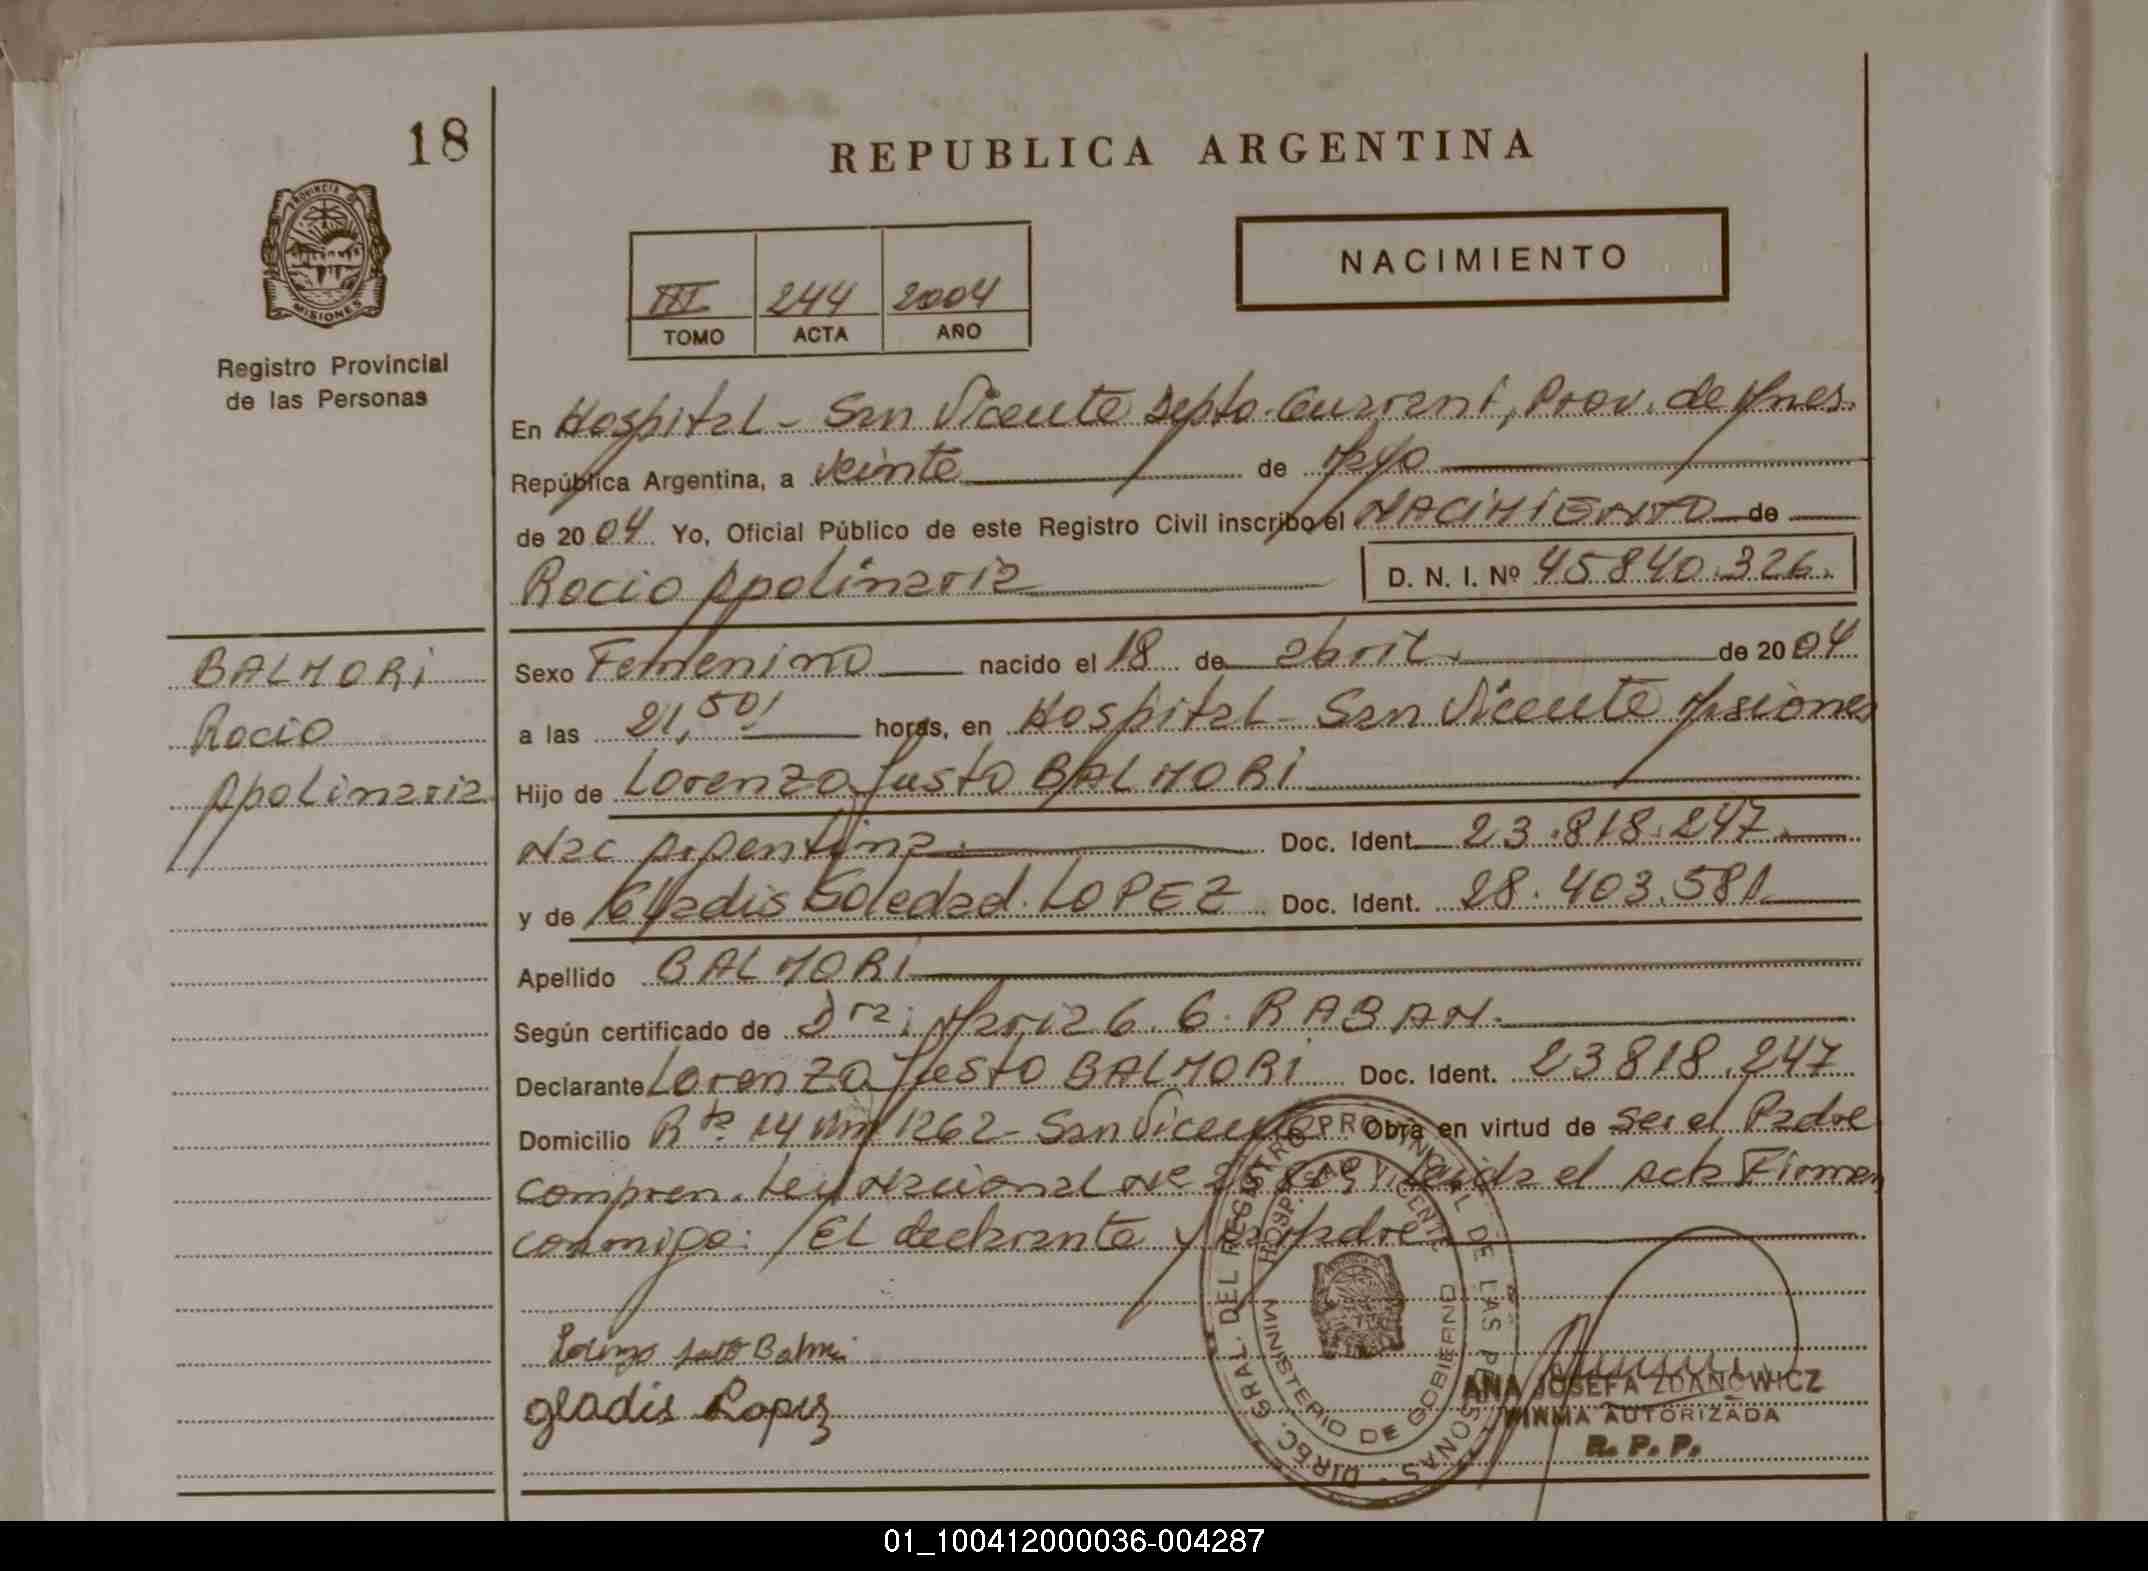 18
PROVINCIA DE
MISIONES
Registro Provincial
de las Personas
REPUBLICA ARGENTINA
III 244 2004
TOMO ACTA AÑO
NACIMIENTO
En Hospital - San Vicente Depto. Guarani, Prov. de Mnes.
República Argentina, a veinte de Mayo
de 2004 Yo, Oficial Público de este Registro Civil inscribo el NACIMIENTO de
Rocio Apolinaria D. N. I. Nº 45840.326.
BALMORI
Rocio
Apolinaria
Sexo Femenino nacido el 18 de abril de 2004
a las 21,50' horas, en Hospital - San Vicente Misiones
Hijo de Lorenzo Justo BALMORI
Nac Argentina. Doc. Ident. 23.818.247.
y de Gladis Soledad LOPEZ Doc. Ident. 28.403.581
Apellido BALMORI
Según certificado de Dra: Maria G. G. RABAN.
Declarante Lorenzo Justo BALMORI Doc. Ident. 23818.247
Domicilio Rta. 14 Km 1262 - San Vicente Obra en virtud de ser el Padre
compren. Ley Nacional Nº Leida el Acta Firman
conmigo: El declarante y la Madre
Lorenzo Justo Balmori
gladis Lopez
DIREC. GRAL. DEL REGISTRO PROVINCIAL DE LAS PERSONAS -
HOSP. SAN VICENTE
MINISTERIO DE GOBIERNO
ANA JOSEFA ZDANOWICZ
FIRMA AUTORIZADA
R. P. P.
01_100412000036-004287